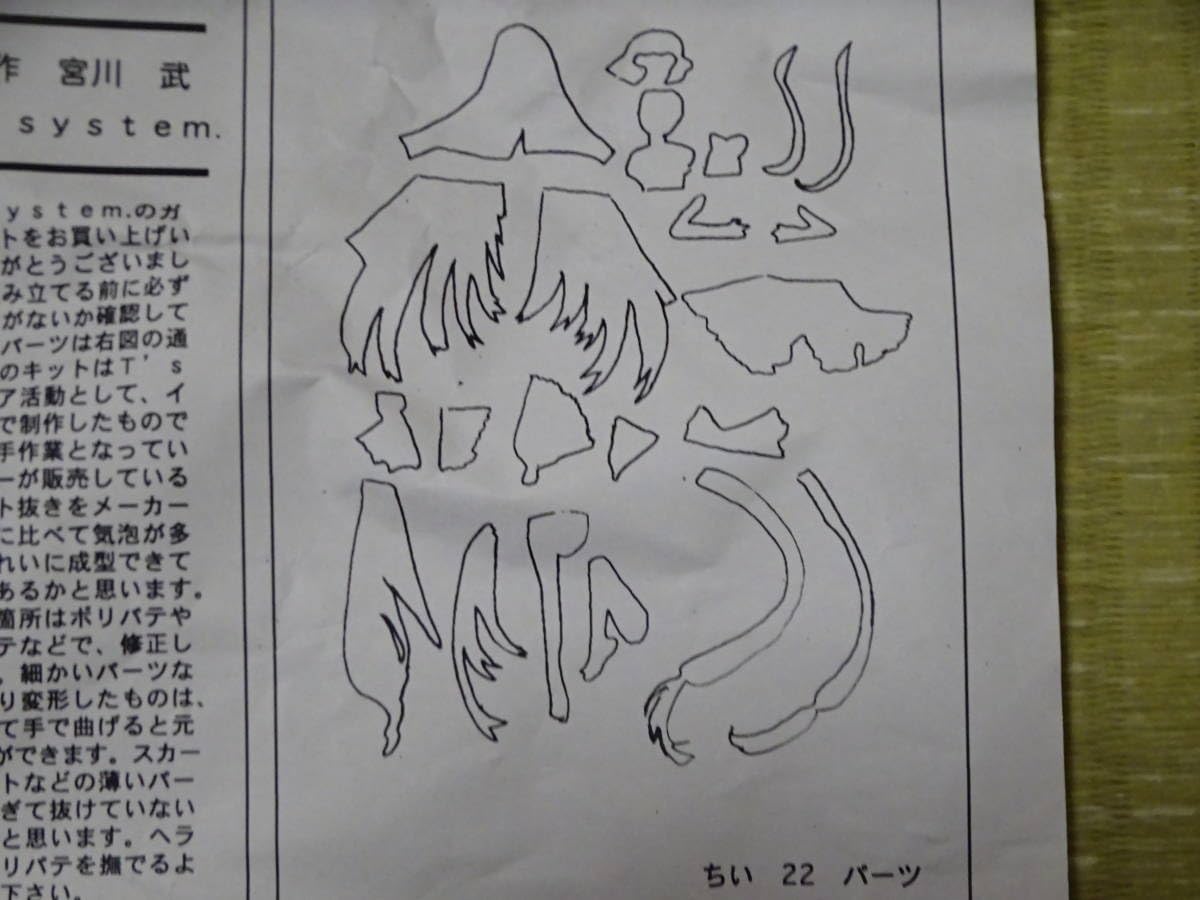 作 宮川 武
system.
ystem.のガ
トをお買い上げい
がとうございまし
み立てる前に必ず
がないか確認して
パーツは右図の通
のキットはT's
ア活動として、イ
で制作したもので
手作業となってい
ーが販売している
ト抜きをメーカー
に比べて気泡が多
れいに成型できて
あるかと思います。
箇所はポリパテや
テなどで、修正し
。細かいパーツな
り変形したものは、
て手で曲げると元
ができます。スカー
トなどの薄いパー
ぎて抜けていない
と思います。ヘラ
リパテを撫でるよ
下さい。
ちい 22 パーツ